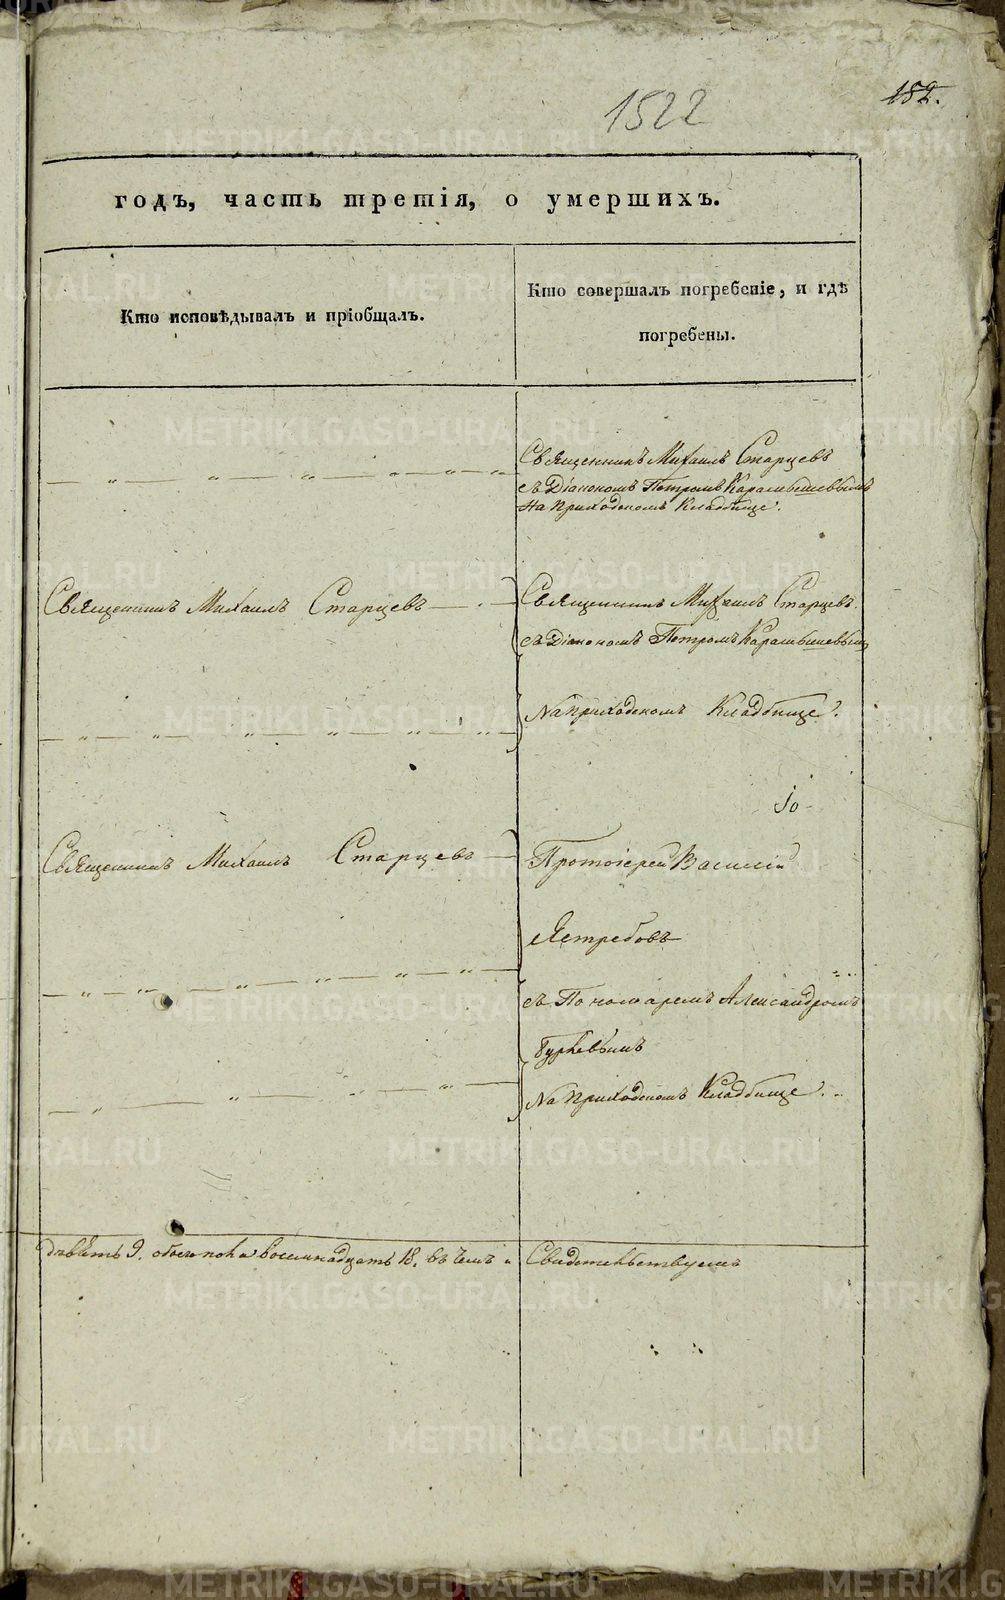 1522
182.
годъ, часть третія, о умершихъ.
Кто исповѣдывалъ и пріобщалъ.
Кто совершалъ погребеніе, и гдѣ
погребены.
Священникъ Михаилъ Старцевъ
съ Діакономъ Петромъ Карамышевымъ
на приходскомъ кладбище.
Священникъ Михаилъ Старцевъ
Священникъ Михаилъ Старцевъ
съ Діакономъ Петромъ Карамышевымъ
На приходскомъ Кладбище.
Священникъ Михаилъ Старцевъ
Протоіерей Василій
Ястребовъ
съ Пономаремъ Александромъ
На приходскомъ Кладбище.
девять 9. обоего пола восемнадцать 18. въ чемъ и
Свидетельствуемъ
METRIKI.GASO-URAL.RU